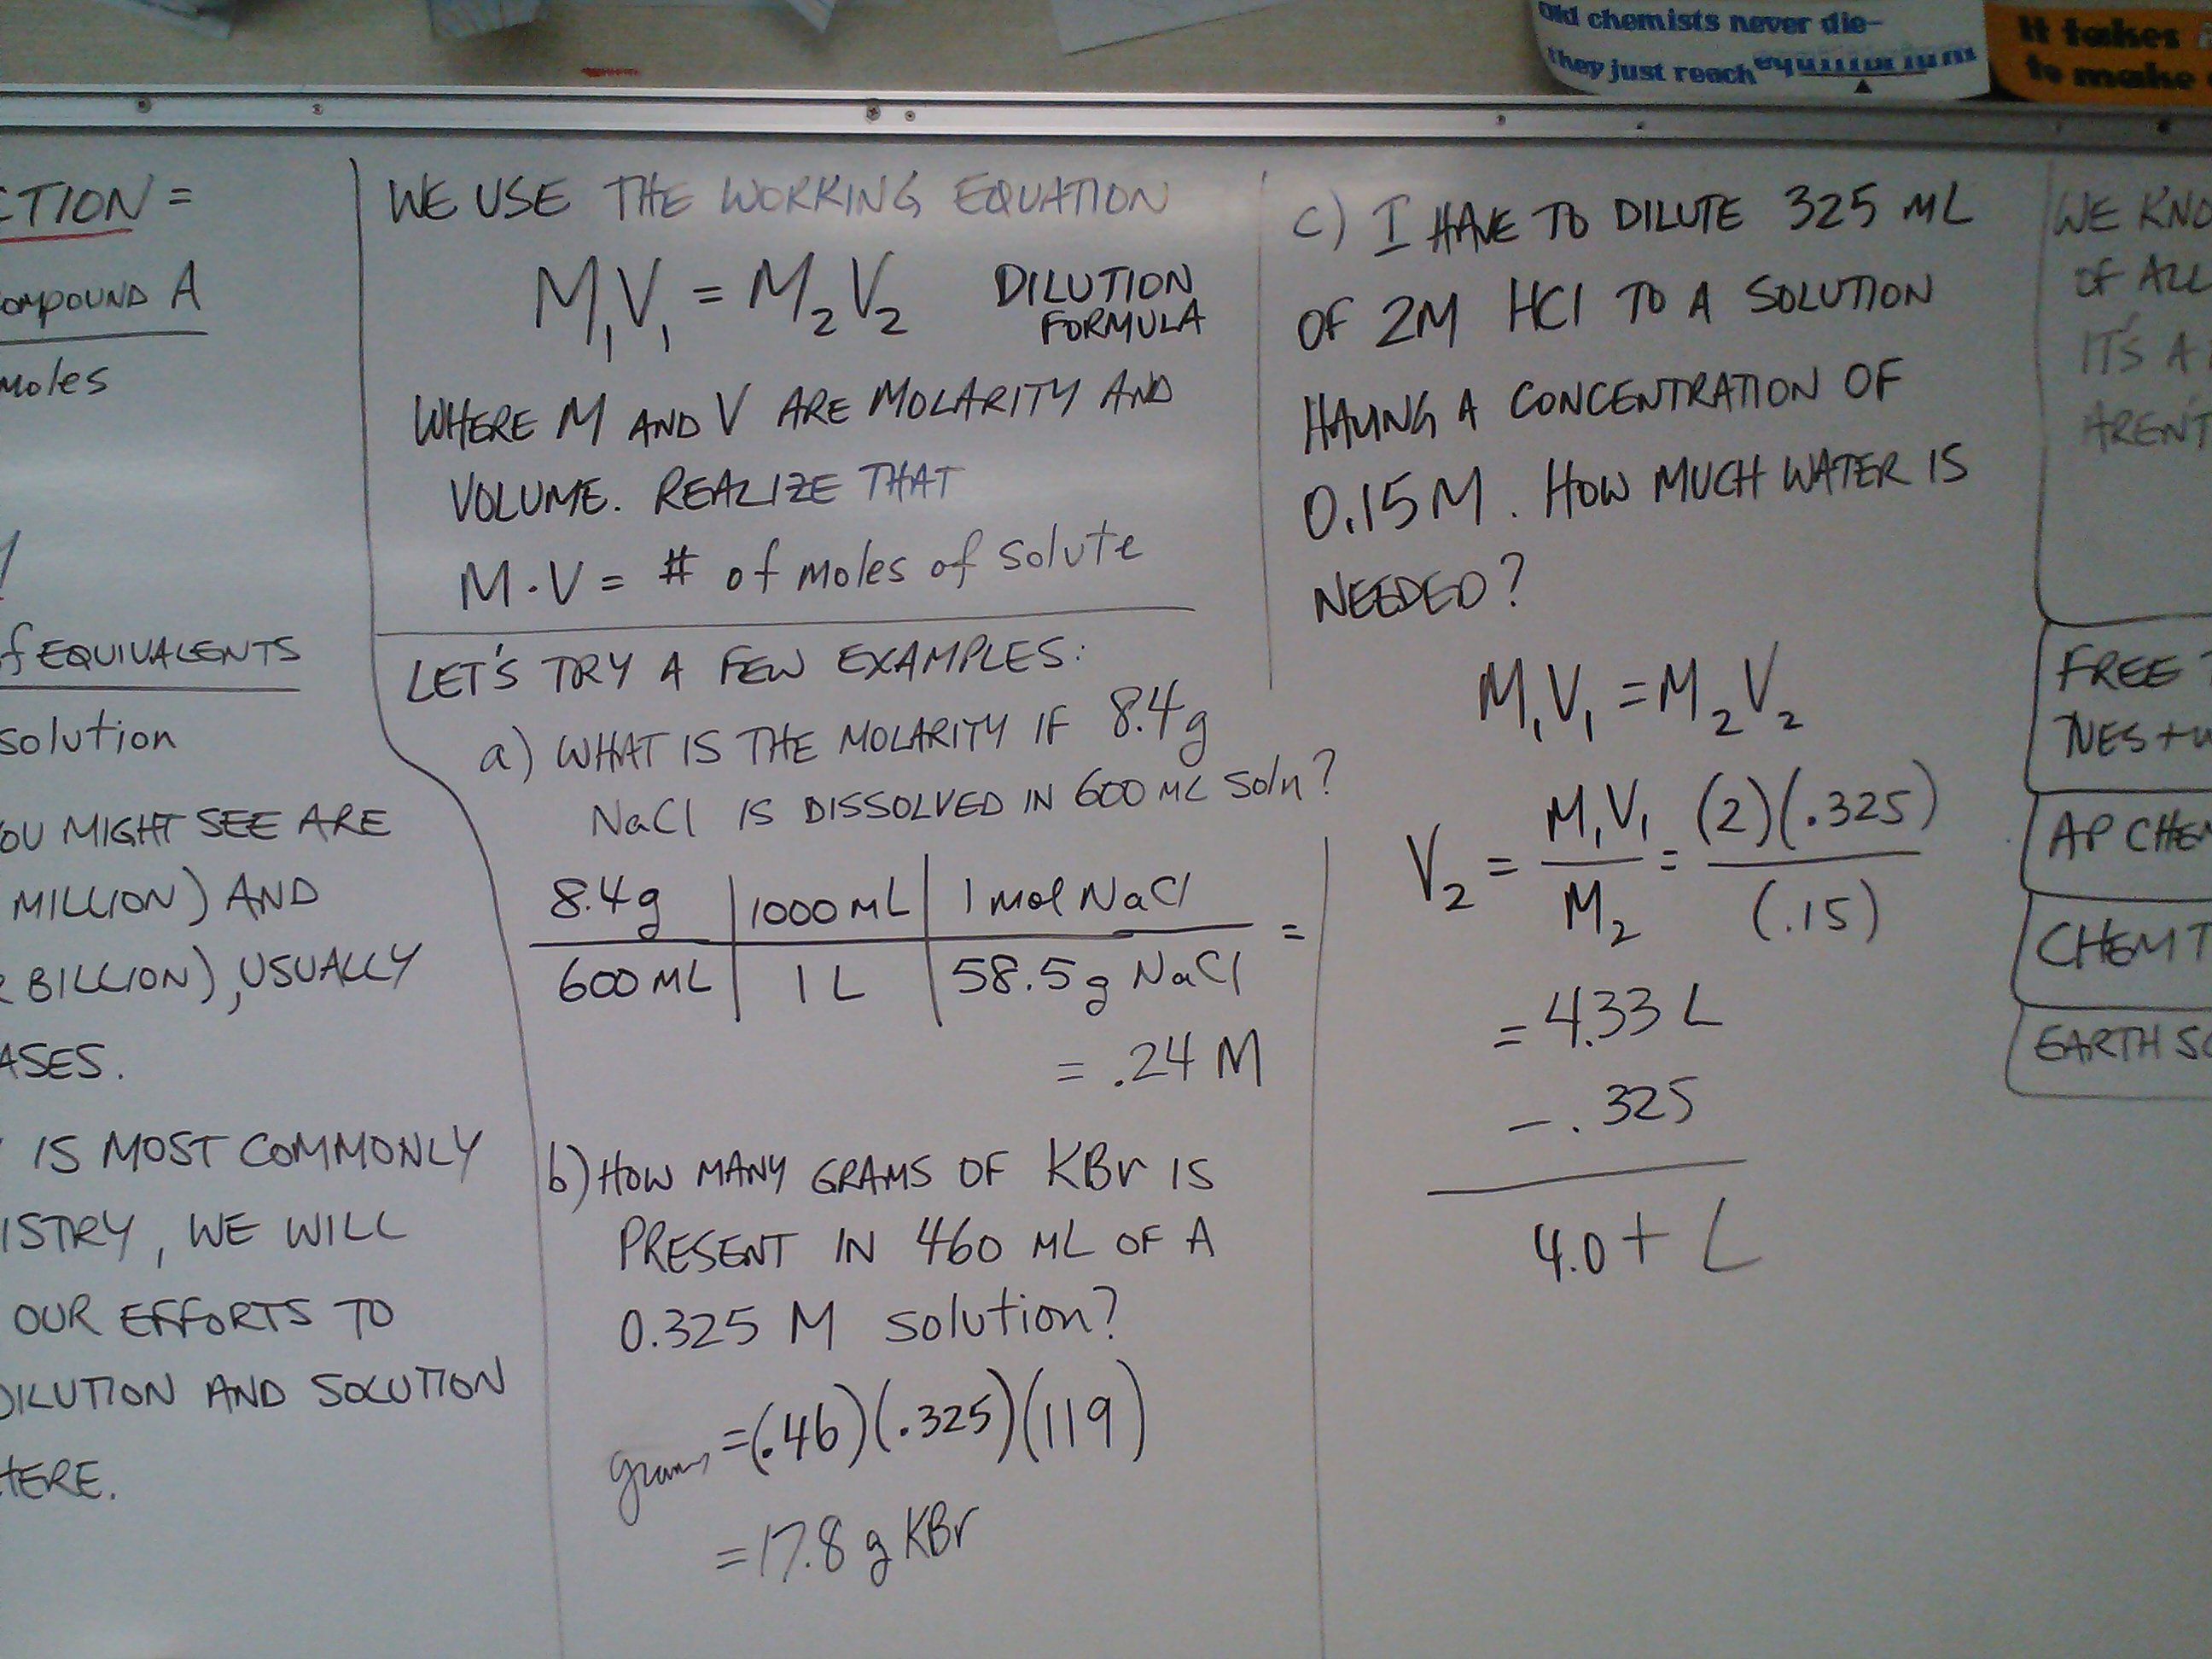 Old chemists never die-
they just reach equilibrium
It takes
to make
CTION =
OMPOUND A
moles
of EQUIVALENTS
solution
OU MIGHT SEE ARE
MILLION) AND
R BILLION), USUALLY
ASES.
IS MOST COMMONLY
ISTRY, WE WILL
OUR EFFORTS TO
DILUTION AND SOLUTION
HERE.
WE USE THE WORKING EQUATION
M₁V₁ = M₂V₂ DILUTION FORMULA
WHERE M AND V ARE MOLARITY AND
VOLUME. REALIZE THAT
M·V = # of moles of solute
LET'S TRY A FEW EXAMPLES:
a) WHAT IS THE MOLARITY IF 8.4g
NaCl IS DISSOLVED IN 600 ML soln?
8.4g | 1000 ML | 1 mol NaCl =
600 ML | 1 L | 58.5 g NaCl
= .24 M
b) HOW MANY GRAMS OF KBr IS
PRESENT IN 460 ML OF A
0.325 M solution?
grams = (.46)(.325)(119)
= 17.8 g KBr
c) I HAVE TO DILUTE 325 ML
OF 2M HCl TO A SOLUTION
HAVING A CONCENTRATION OF
0.15M. HOW MUCH WATER IS
NEEDED?
M₁V₁ = M₂V₂
V₂ = M₁V₁ = (2)(.325)
M₂ (.15)
= 4.33 L
- .325
4.0+ L
WE KNO
OF ALL
IT'S A
AREN'T
FREE
TUES+W
AP CHEM
CHEM T
EARTH SC